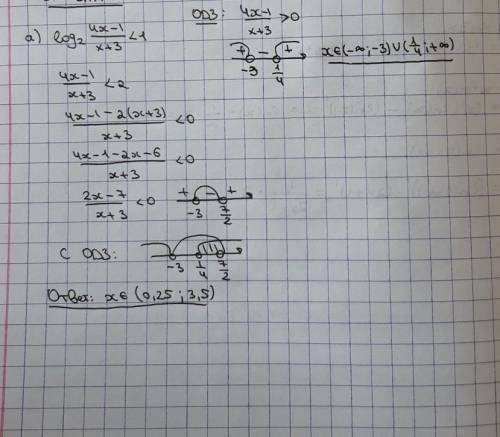 ОДЗ: (4x-1)/(x+3) > 0
а) log₂ (4x-1)/(x+3) < 1
+ - +
-3 1/4
x∈(-∞; -3)∪(1/4; +∞)
(4x-1)/(x+3) < 2
(4x-1-2(x+3))/(x+3) < 0
(4x-1-2x-6)/(x+3) < 0
(2x-7)/(x+3) < 0
+ - +
-3 7/2
С ОДЗ:
-3 1/4 7/2
Ответ: x∈(0,25; 3,5)